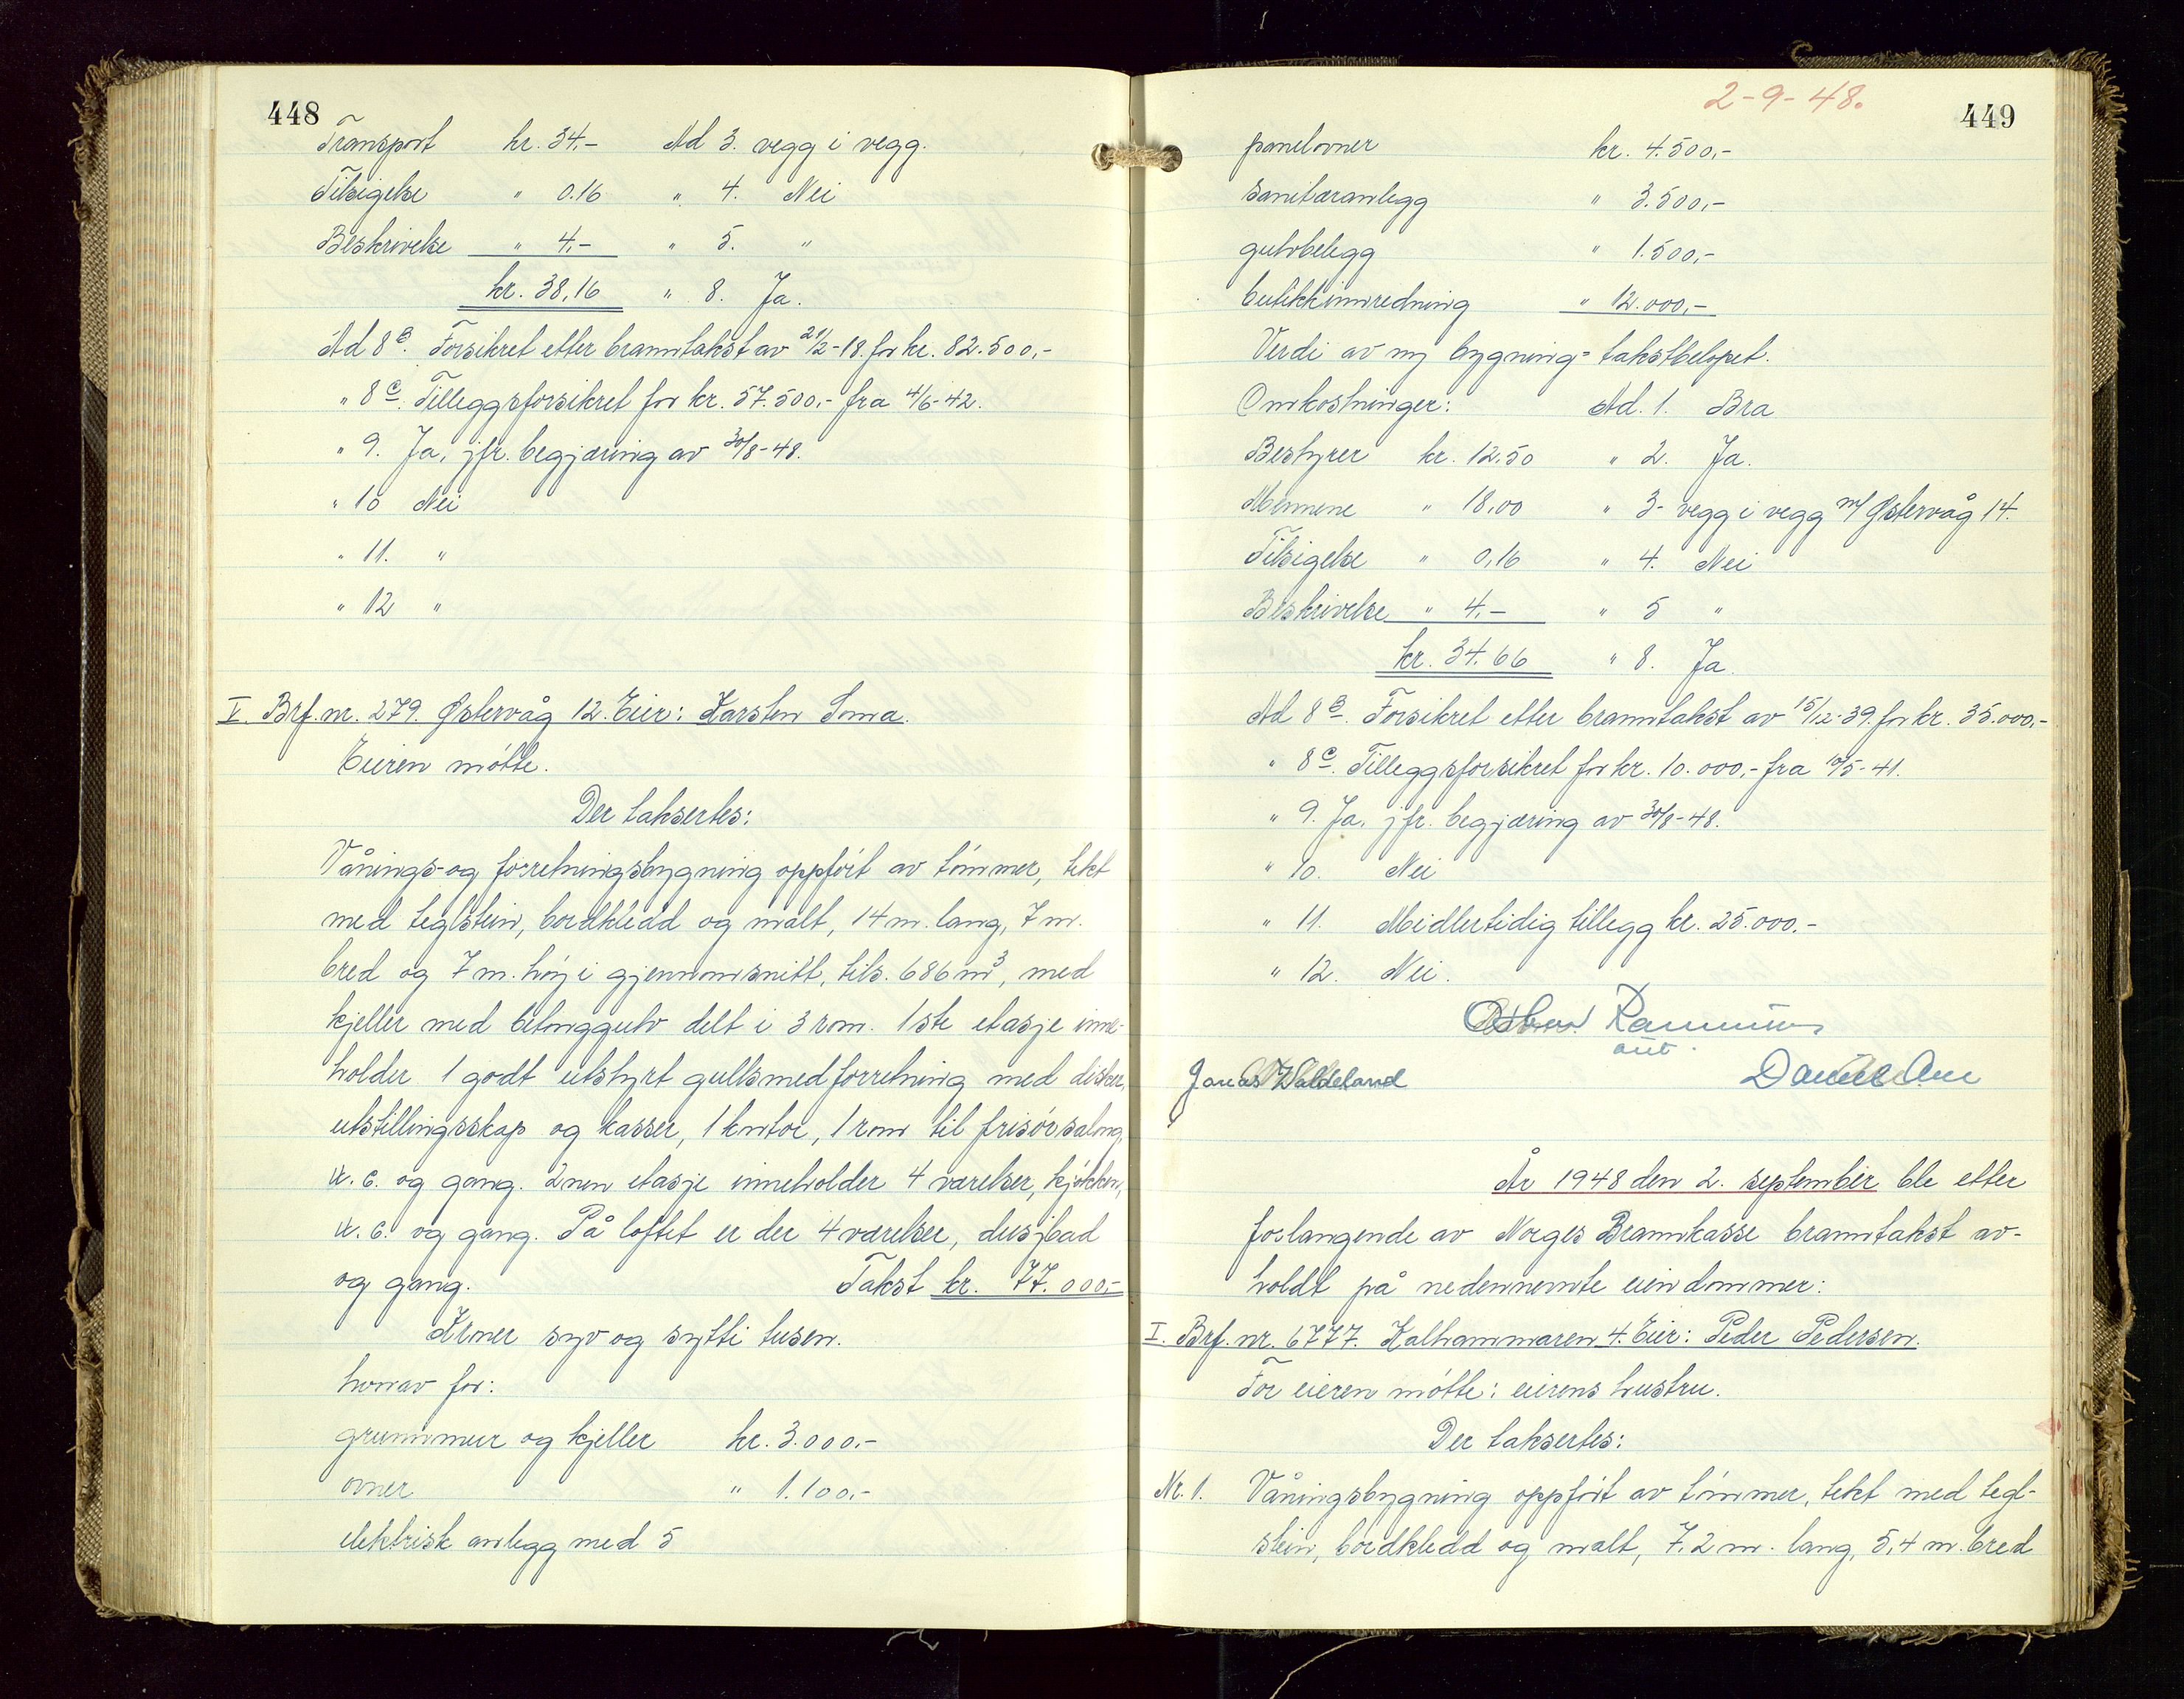 448
Transport kr. 34,- Ad 3. vegg i vegg.
Tilsigelse " 0.16 " 4. Nei
Beskrivelse " 4,- " 5. "
kr. 38,16 " 8. Ja.
Ad 8 B. Forsikret etter branntakst av 21/2-18. for kr. 82.500,-
" 8 c. Tilleggsforsikret for kr. 57.500,- fra 4/6-42.
" 9. Ja, jfr. begjæring av 30/8-48.
" 10 Nei
" 11. "
" 12 "
V. Brf. nr. 279. Østervåg 12. Eier: Karsten Soma.
Eieren møtte.
Der taksertes:
Vånings- og forretningsbygning oppført av tømmer, tekt
med teglstein, bordkledd og malt, 14 m. lang, 7 m.
bred og 7 m. høy i gjennomsnitt, tils. 686 m³, med
kjeller med betonggulv delt i 3 rom. 1ste etasje inne-
holder 1 godt utstyrt gullsmedforretning med disker,
utstillingsskap og kasser, 1 kontor, 1 rom til frisørsalong,
w.c. og gang. 2nen etasje inneholder 4 værelser, kjøkken,
w.c. og gang. På loftet er der 4 værelser, dusjbad
og gang. Takst kr. 77.000,-
Kroner syv og sytti tusen.
hvorav for:
grunnmur og kjeller kr. 3.000,-
ovner " 1.100,-
elektrisk anlegg med 5
2-9-48.
449
panelovner kr. 4.500,-
sanitæranlegg " 3.500,-
gulvbelegg " 1.500,-
butikkinnredning " 12.000,-
Verdi av ny bygning = takstbeløpet.
Omkostninger: Ad. 1. Bra
Bestyrer kr. 12,50 " 2. Ja.
Mennene " 18,00 " 3- vegg i vegg m/ Østervåg 14.
Tilsigelse " 0,16 " 4. Nei
Beskrivelse " 4,- " 5 "
kr. 34.66 " 8. Ja.
Ad 8 B. Forsikret etter branntakst av 15/12-39. for kr. 35.000,-
" 8 c. Tilleggsforsikret for kr. 10.000,- fra 10/5-41.
" 9. Ja, jfr. begjæring av 30/8-48.
" 10. Nei
" 11. Midlertidig tillegg kr. 25.000,-
" 12. Nei.
Rasmussen
aut.
Jonas Waldeland Daniel Aue
År 1948 den 2. september ble etter
forlangende av Norges Brannkasse branntakst av-
holdt på nedennevnte eiendommer:
I. Brf. nr. 6777. Kalhammaren 4. Eier: Peder Pedersen.
For eieren møtte: eierens hustru.
Der taksertes:
Nr. 1. Våningsbygning oppført av tømmer, tekt med tegl-
stein, bordkledd og malt, 7,2 m. lang, 5,4 m. bred